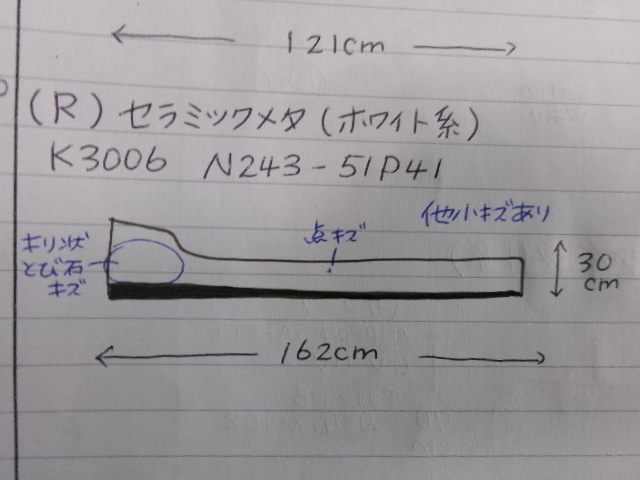 121cm
(R) セラミックメタ(ホワイト系)
K3006 N243-51P41
他小キズあり
点キズ
キリン状
とび石
キズ
30
cm
162cm